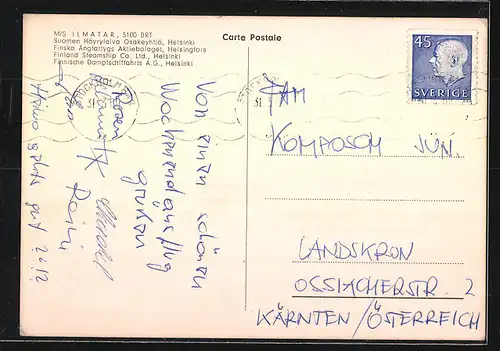 M/S ILMATAR, 5100 BRT
Suomen Höyrylaiva Osakeyhtiö, Helsinki
Finska Ångfartygs Aktiebolaget, Helsingfors
Finland Steamship Co. Ltd., Helsinki
Finnische Dampfschiffahrts A.G., Helsinki
Carte Postale
45
SVERIGE
STOCKHOLM
31
31
Von einen schönen
Wochenendausflug
grüßen
FAM
KOMPOSCH JUN.
LANDSKRON
OSSIACHERSTR. 2
KÄRNTEN/ÖSTERREICH